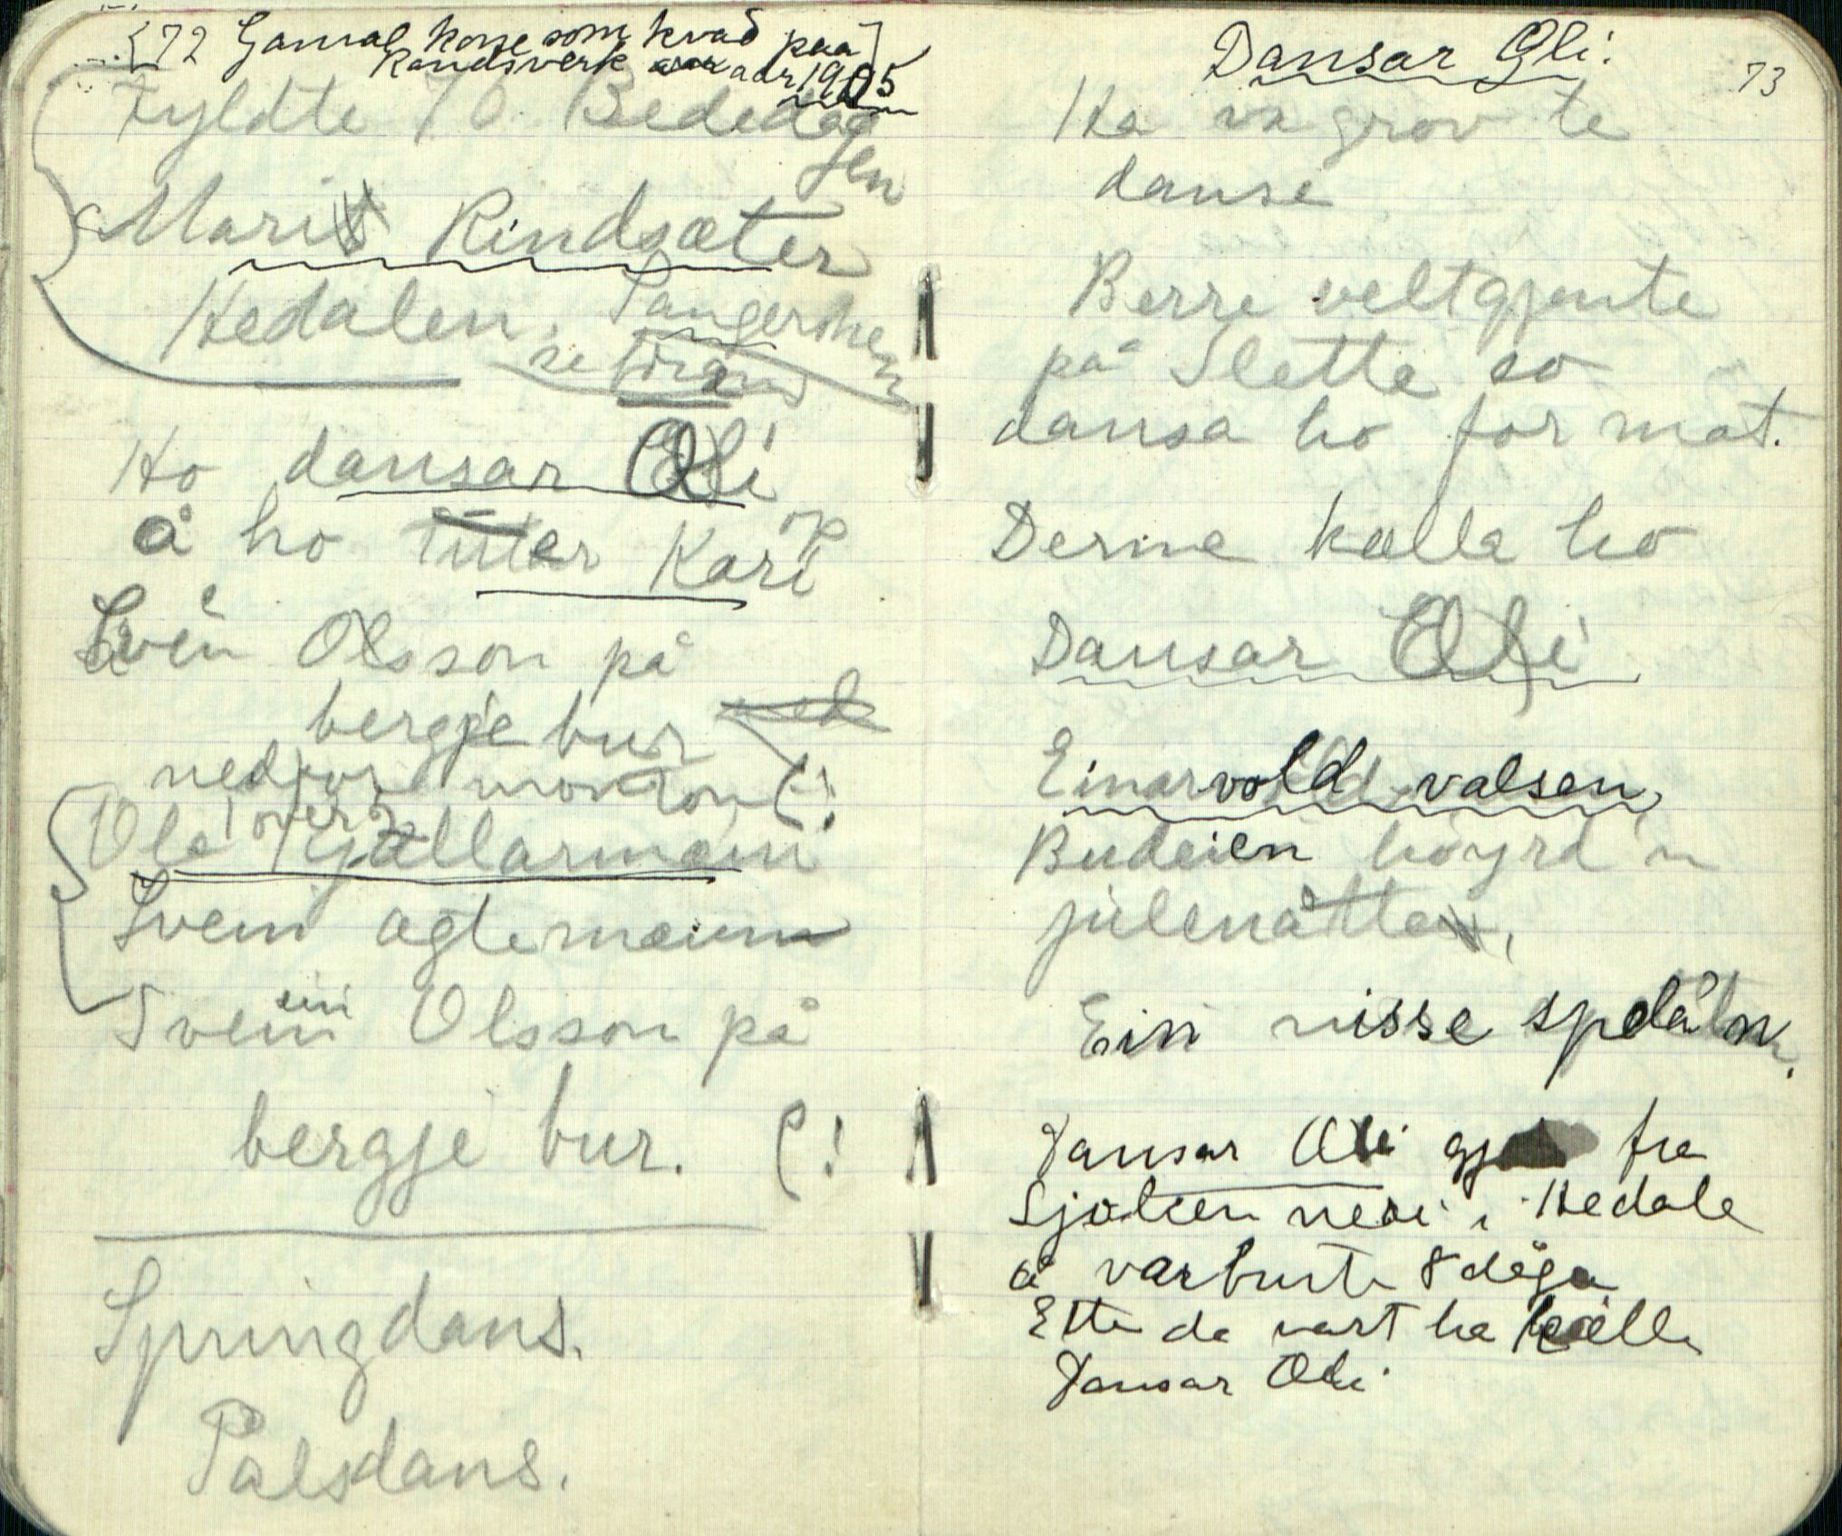 72 Gamal kone som kvad paa
Randsverk aar 1905
Fyldte 70. Bededag
gen
Mari Rindsæter
Hedalen.
Ho dansar Oli
å ho tuter Kari
op
Svein Olsson på
bergje bur
nedfor
over
Ole Gjallarmann
Svein agtemann
Svein Olsson på
bergje bur. (!
Springdans.
Palsdans.
Dansar Oli.
73
Ha va grov te
danse
Berre veltgjente
på Slette so
dansa ho for mat.
Derme kalla ho
Dansar Oli
Einarvold valsen,
Budeien høyrd n
julenåtte,
Ein nisse spelåtn.
Dansar Oli fra
Sjolien neri i Hedale
å var burte 8 døga
Ette da vart ha kalla
Dansar Oli